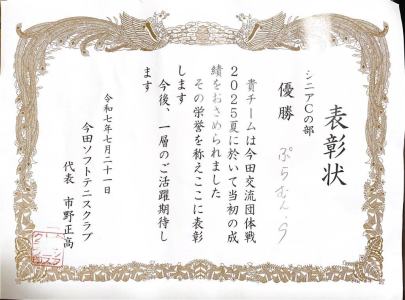 表彰状
シニアCの部
優勝 ぷらむん。
貴チームは今田交流団体戦
2025夏に於いて当初の成
績をおさめられました
その栄誉を称えここに表彰
します
今後、一層のご活躍期待し
ます
令和七年七月二十一日
今田ソフトテニスクラブ
代表 市野正高